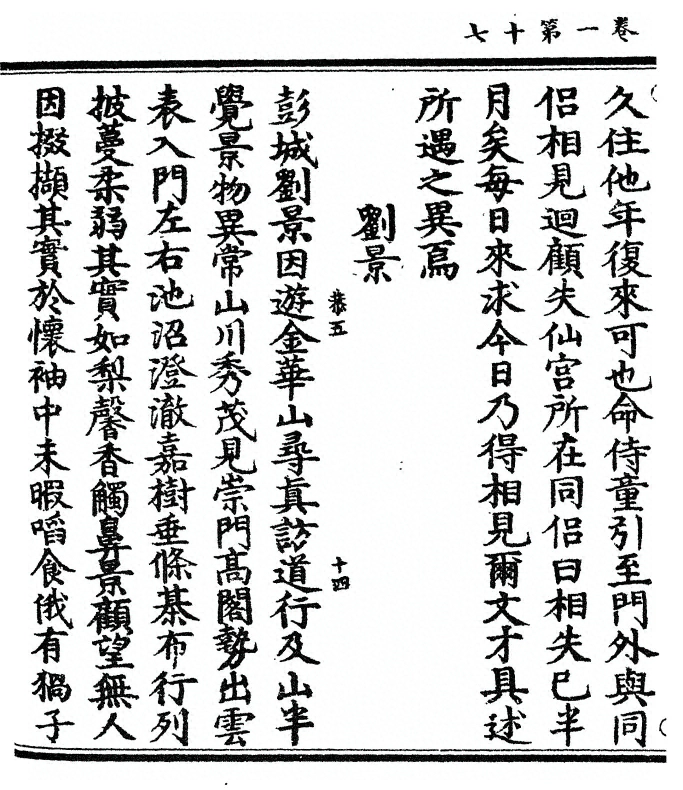 卷一第十七
久住他年復來可也命侍童引至門外與同
侣相見迴顧失仙宫所在同侣曰相失已半
月矣每日來求今日乃得相見爾文才具述
所遇之異焉
劉景
恭五
十四
彭城劉景因遊金華山尋真訪道行及山半
覺景物異常山川秀茂見崇門高閣勢出雲
表入門左右池沼澄澈嘉樹垂條棊布行列
披蔓柔弱其實如梨馨香觸鼻景顧望無人
因掇擷其實於懷袖中未暇啗食俄有猧子